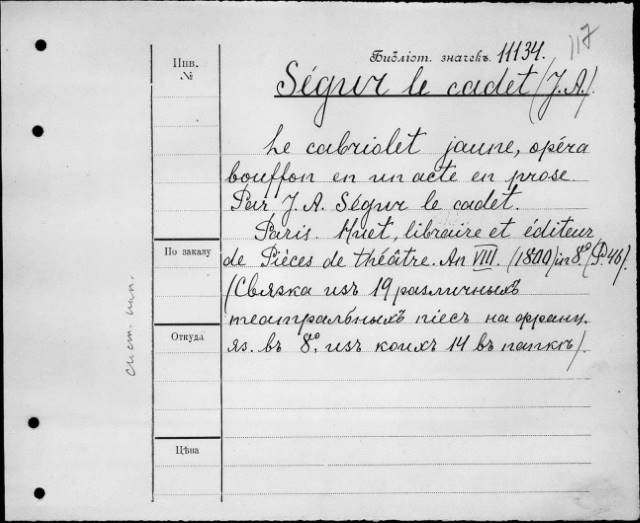 117
Библіот. значекъ 11134.
Инв.
№
Ségur le cadet (J.A.).
Le cabriolet jaune, opéra
bouffon en un acte en prose.
Par J. A. Ségur le cadet.
Paris. Huet, libraire et éditeur
По заказу
de Pièces de théâtre. An VIII. (1800) in 8º (P. 46).
(Связка изъ 19 различныхъ
театральныхъ піесъ на франц.
Откуда
яз. въ 8º, изъ коихъ 14 въ папкѣ).
Цѣна